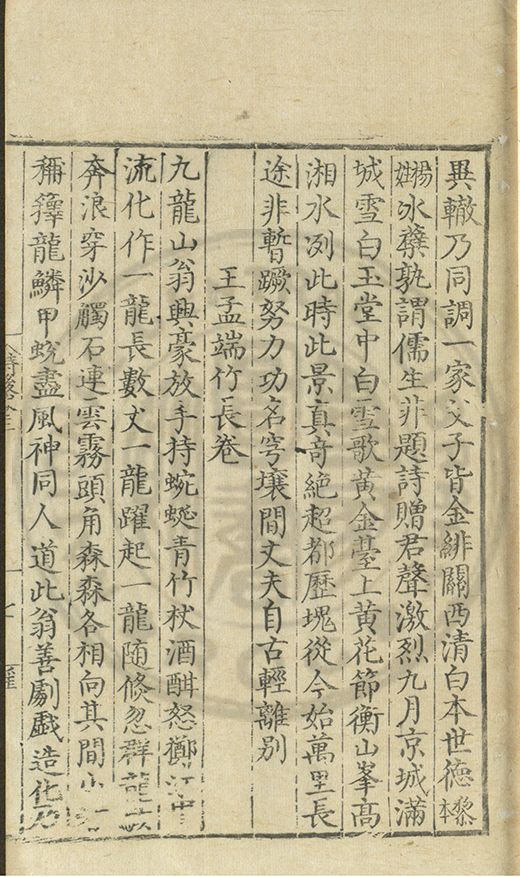 異轍乃同調一家父子皆金緋關西清白本世德黎本
楊姓冰蘖孰謂儒生非題詩贈君聲激烈九月京城滿
城雪白玉堂中白雪歌黃金臺上黃花節衡山峯高
湘水冽此時此景真奇絕超都歷塊從今始萬里長
途非暫蹶努力功名穹壤間丈夫自古輕離別
王孟端竹長卷
九龍山翁興豪放手持蜿蜒青竹杖酒酣怒擲江
流化作一龍長數丈一龍躍起一龍随倏忽群龍
奔浪穿沙觸石連雲霧頭角森森各相向其間小
稱籜龍鱗甲蛻盡風神同人道此翁善劇戲造化